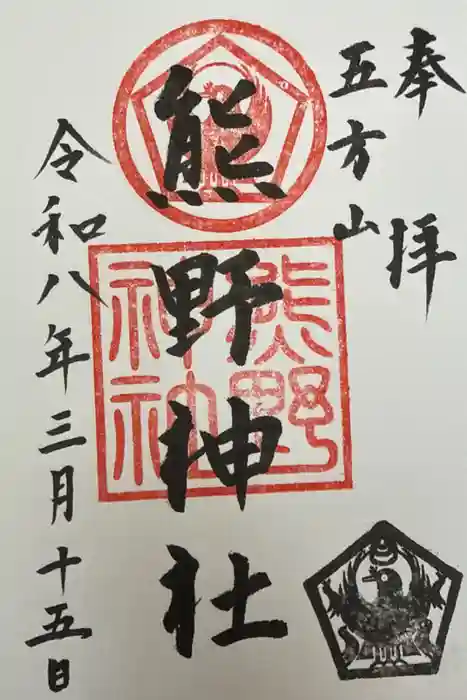 奉拝
五方山
熊野神社
令和八年三月十五日
熊野
神社